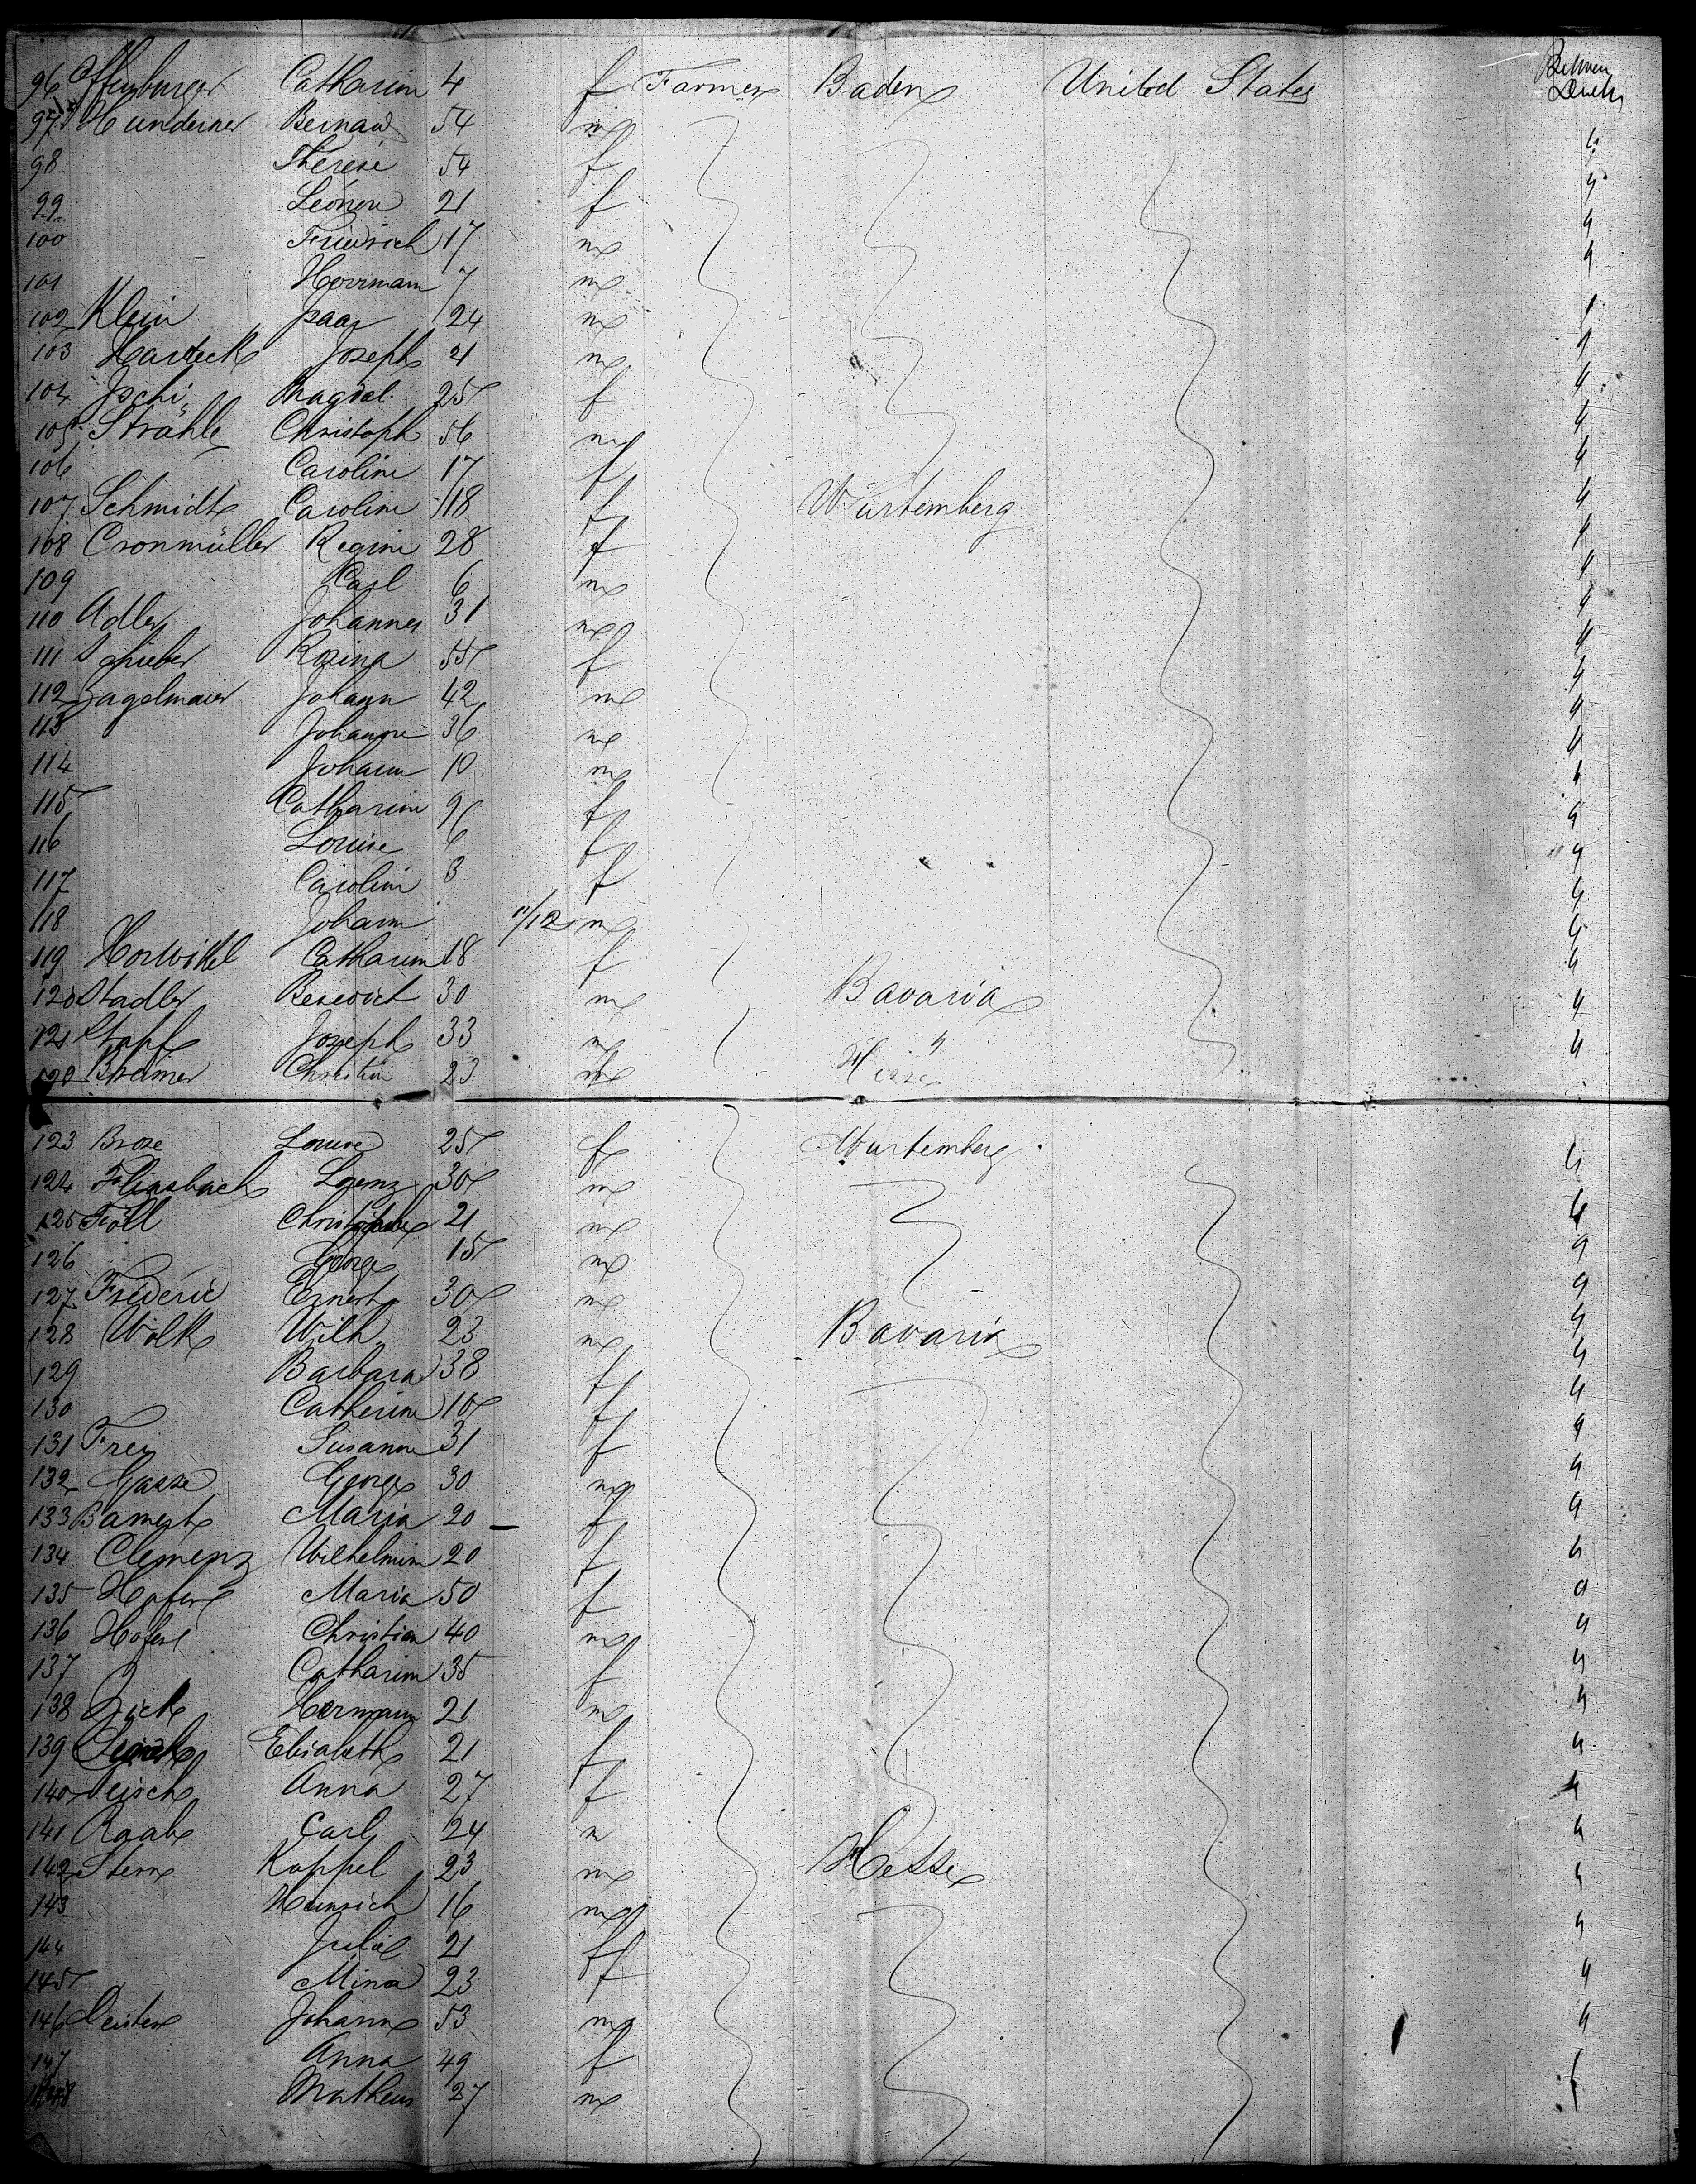 96 Offenburger Catharine 4 f Farmer Baden United States Between Decks
97 Hunderner Bernard 54 m "
98 Therese 54 f "
99 Leonore 21 f "
100 Friedrich 17 m "
101 Herrmann 7 m
102 Klein Isaac 24 m "
103 Joseph 21 m "
104 Magdal. 25 f "
105 Strähle Christoph 56 m "
106 Caroline 17 f "
107 Schmidt Caroline 18 f Wurtemberg "
108 Cronmüller Regine 28 f "
109 Carl 6 m "
110 Adler Johannes 31 m "
111 Schieber Rosina 55 f "
112 Zagelmaier Johann 42 m "
113 Johanne 36 m "
114 Johann 10 m "
115 Catharine 9 f "
116 Louise 6 f "
117 Caroline 3 f "
118 Johann 11/12 m "
119 Catharine 18 f "
120 Stadler Benedict 30 m Bavaria "
121 Stapf Joseph 33 m " "
Christian 23 m Hesse
123 Broze Louise 25 f Wurtemberg "
124 Lorenz 30 m "
125 Föll Christophe 21 m "
126 George 15 m "
127 Frederic Ernest 30 m "
128 Wolk Wilh. 23 m Bavaria "
129 Barbara 38 f "
130 Catherine 10 f "
131 Frei Susanne 31 f "
132 Gasse George 30 m "
133 Maria 20 f "
134 Clemenz Wilhelmine 20 f "
135 Maria 50 f "
136 Christian 40 m "
137 Catharine 35 f "
138 Hermann 21 m "
139 Elisabeth 21 f "
140 Anna 27 f "
141 Raab Carl 24 m "
142 Stern Koppel 23 m Hesse "
143 Heinrich 16 m "
144 Julie 21 f
145 Mina 23 f "
146 Johann 53 m "
147 Anna 49 f
148 Matheus 27 m